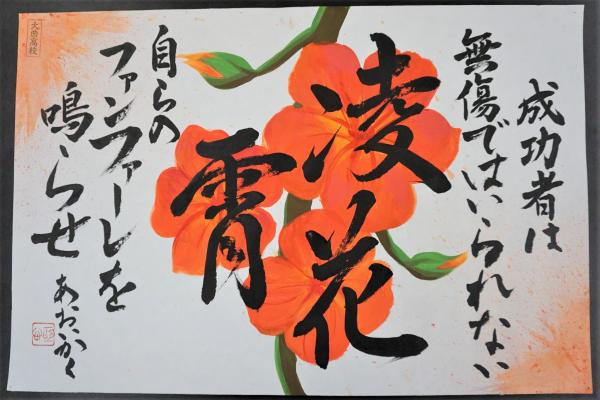 成功者は
無傷ではいられない
凌
霄
花
自らの
ファンファーレを
鳴らせ
大曲高校